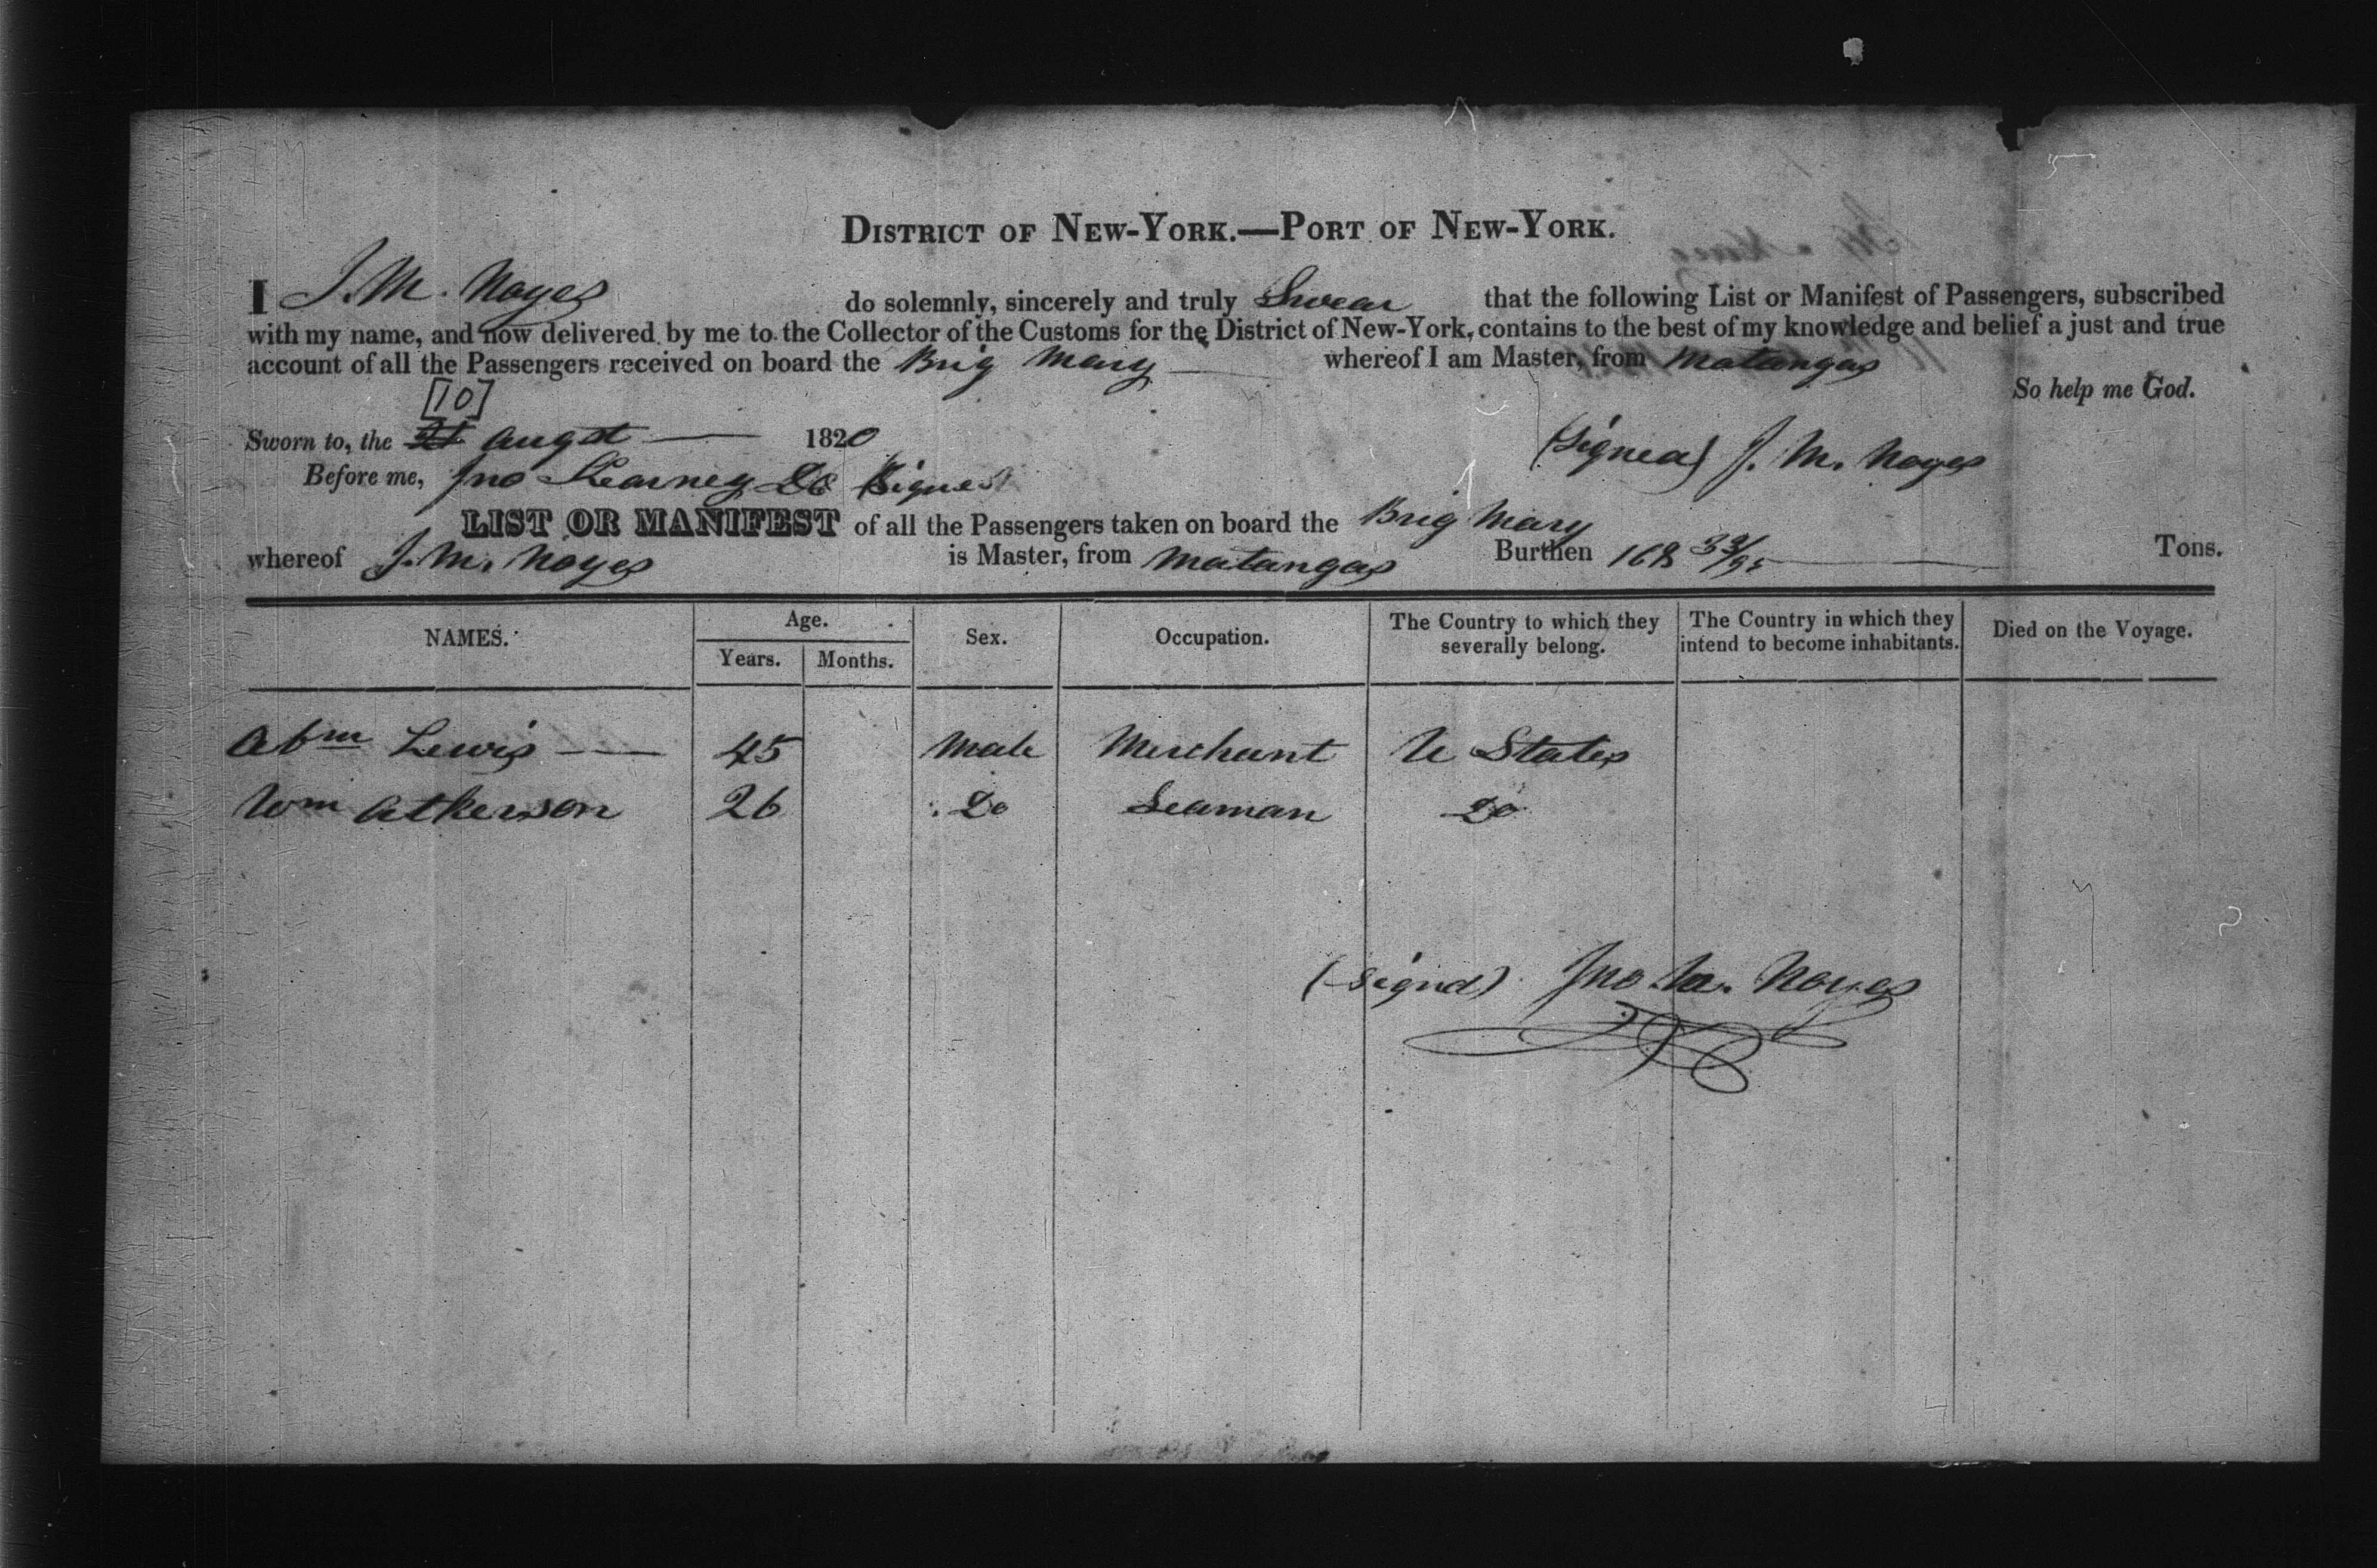 DISTRICT OF NEW-YORK.—PORT OF NEW-YORK.
I J. M. Noyes do solemnly, sincerely and truly Swear that the following List or Manifest of Passengers, subscribed
with my name, and now delivered by me to the Collector of the Customs for the District of New-York, contains to the best of my knowledge and belief a just and true
account of all the Passengers received on board the Brig Mary whereof I am Master, from Matanzas
So help me God.
[10]
Sworn to, the Augst — 1820
(Signed) J. M. Noyes
Before me, Jno Kearney DC Signed
LIST OR MANIFEST of all the Passengers taken on board the Brig Mary
whereof J. M. Noyes is Master, from Matanzas Burthen 168 33/95 Tons.
NAMES. Age. Years. Months. Sex. Occupation. The Country to which they severally belong. The Country in which they intend to become inhabitants. Died on the Voyage.
Abm Lewis — 45 Male Merchant U States
Wm Atkerson 26 Do Seaman Do
(Signd) Jno M. Noyes